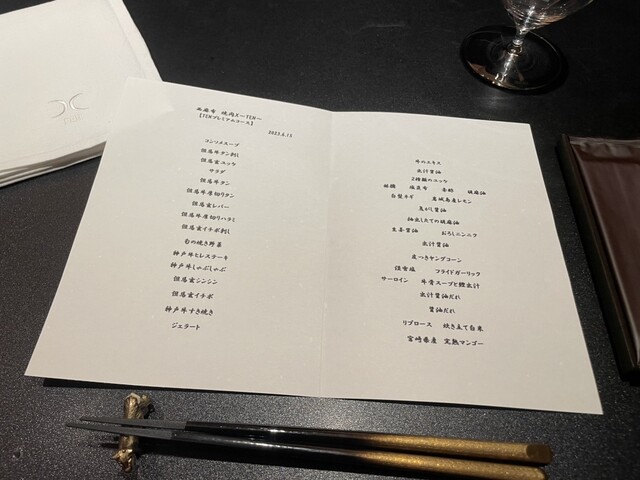 西麻布 焼肉X−TEN−
【TENプレミアムコース】
2023.6.13
コンソメスープ
但馬牛タン刺し
但馬玄ユッケ
サラダ
但馬牛タン
但馬牛厚切りタン
但馬玄レバー
但馬牛厚切りハラミ
但馬玄イチボ刺し
旬の焼き野菜
神戸牛ヒレステーキ
神戸牛しゃぶしゃぶ
但馬玄シンシン
但馬玄イチボ
神戸牛すき焼き
ジェラート
牛のエキス
出汁醤油
2種類のユッケ
胡麻油
白髪ネギ レモン
焦がし醤油
抽出したての胡麻油
生姜醤油 おろしニンニク
出汁醤油
皮つきヤングコーン
淡雪塩 フライドガーリック
サーロイン 牛骨スープと鰹出汁
出汁醤油だれ
醤油だれ
リブロース 炊き立て白米
宮崎県産 完熟マンゴー